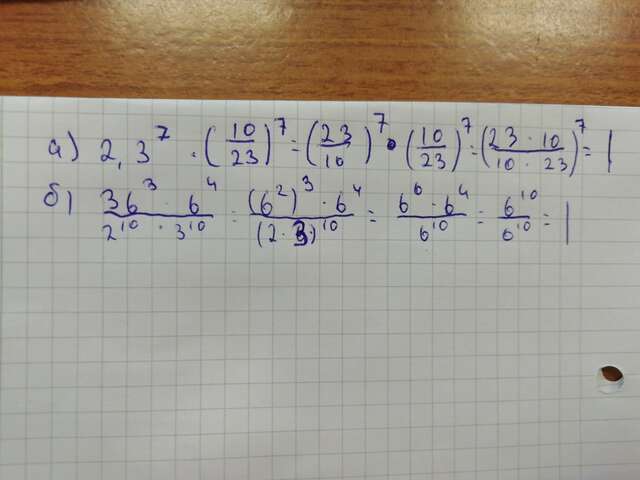 а) 2,3⁷ · (10/23)⁷ = (23/10)⁷ · (10/23)⁷ = (23 · 10 / 10 · 23)⁷ = 1
б) 36³ · 6⁴ / 2¹⁰ · 3¹⁰ = (6²)³ · 6⁴ / (2 · 3)¹⁰ = 6⁶ · 6⁴ / 6¹⁰ = 6¹⁰ / 6¹⁰ = 1